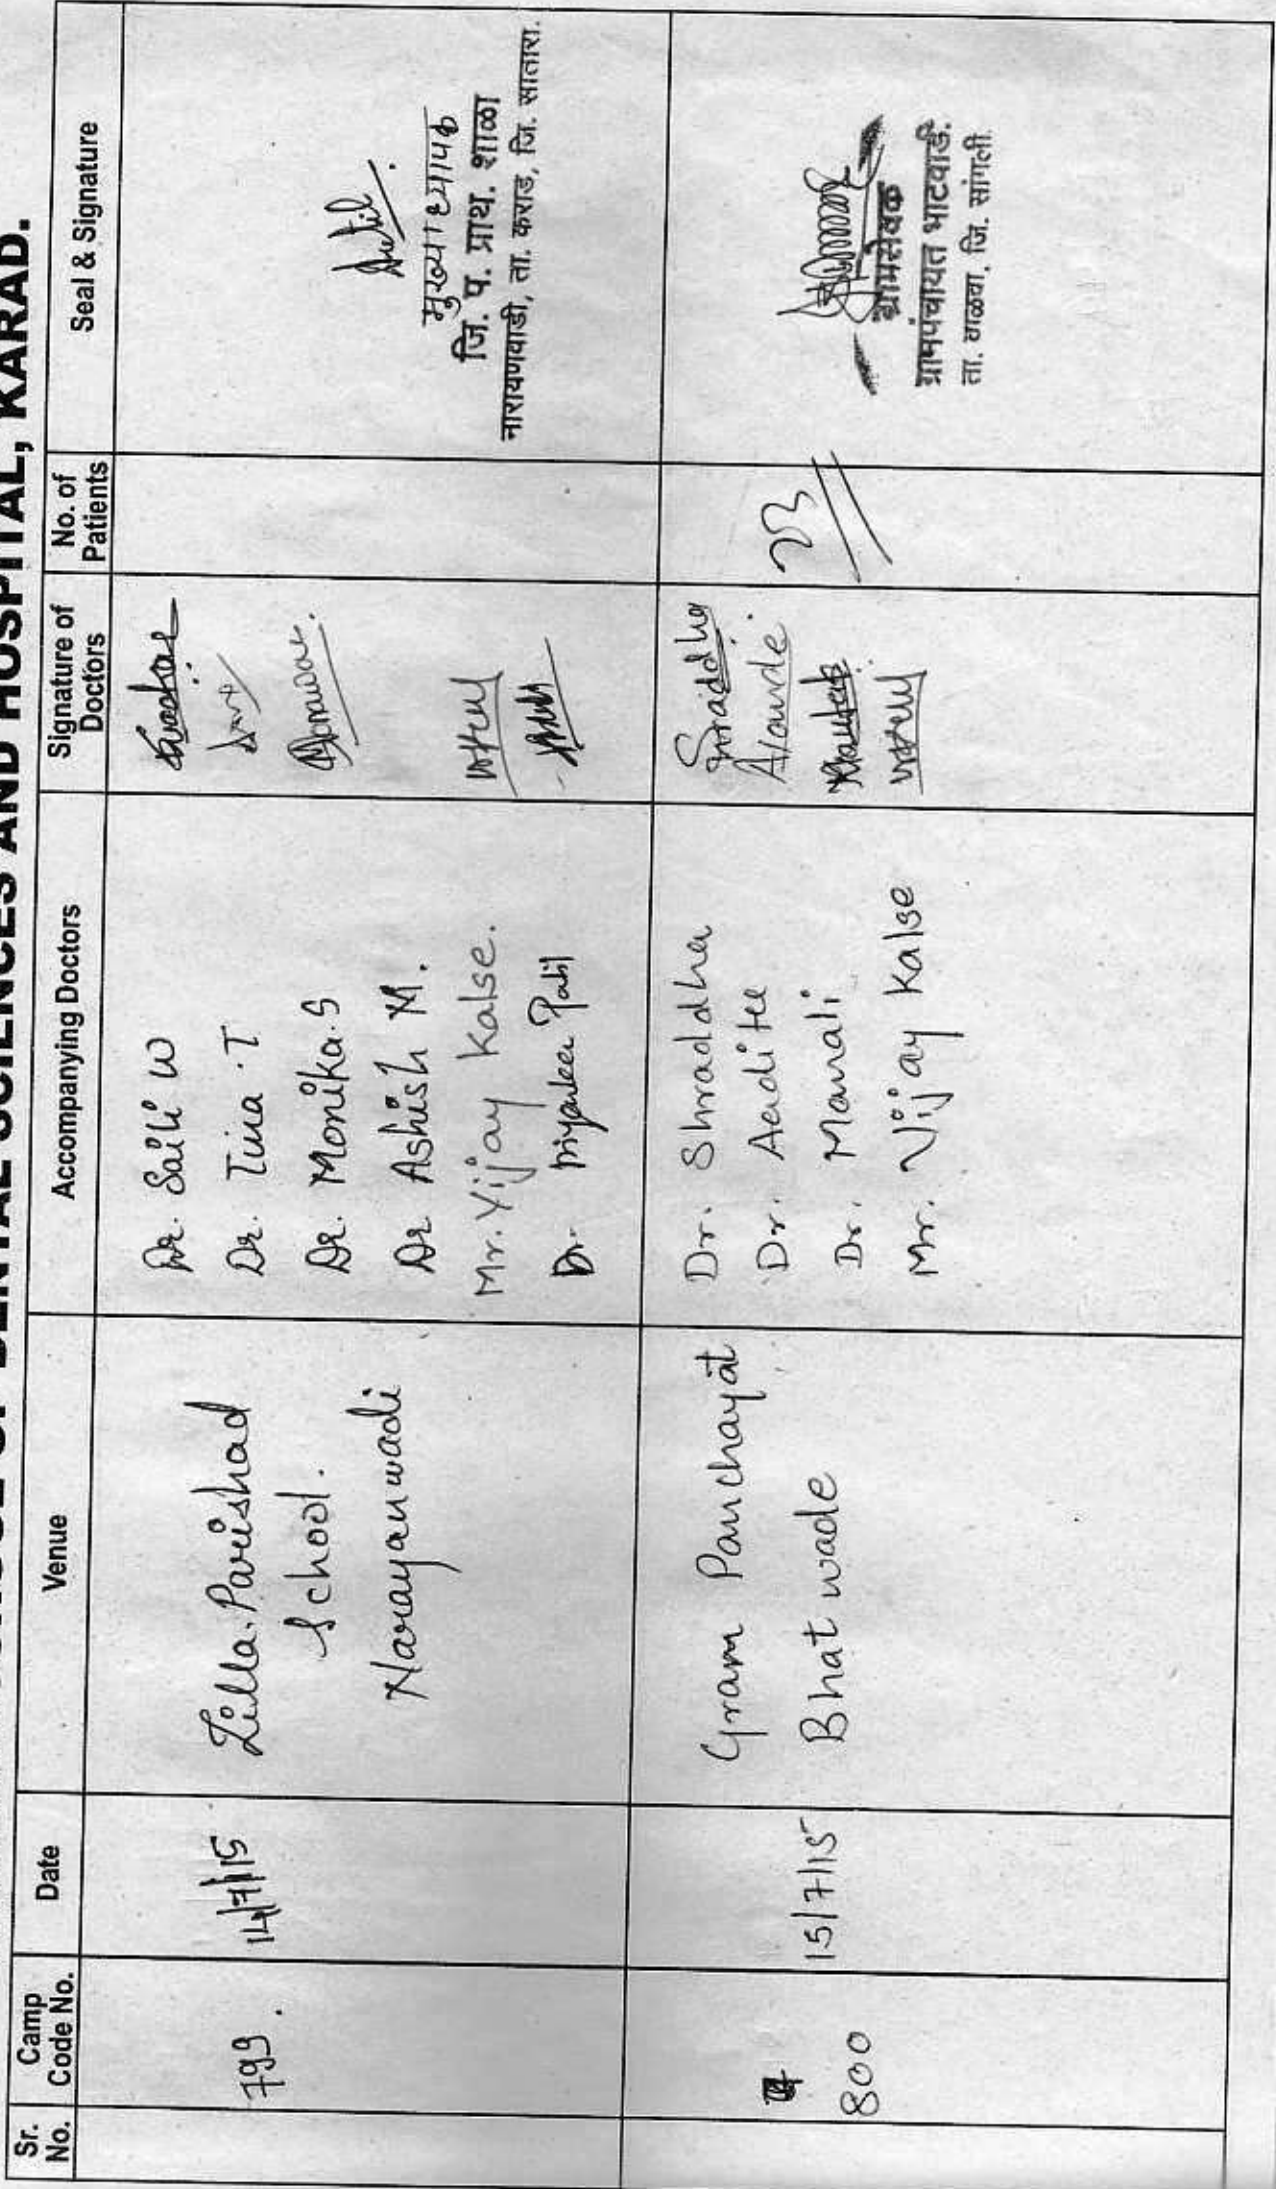 OF DENTAL SCIENCES AND HOSPITAL, KARAD.
Sr. No.
Camp Code No.
Date
Venue
Accompanying Doctors
Signature of Doctors
No. of Patients
Seal & Signature
799.
14/7/15
Zilla. Parishad
School.
Narayanwadi
Dr. Saili W
Dr. Tina . T
Dr. Monika. S
Dr Ashish M.
Mr. Vijay Kalse.
Dr. Priyanka Patil
मुख्याध्यापक
जि. प. प्राथ. शाळा
नारायणवाडी, ता. कराड, जि. सातारा.
800
15/7/15
Gram Panchayat
Bhatwade
Dr. Shraddha
Dr. Aaditee
Dr. Manali
Mr. Vijay Kalse
Shraddha
23
ग्रामसेवक
ग्रामपंचायत भाटवाडे.
ता. वाळवा, जि. सांगली.